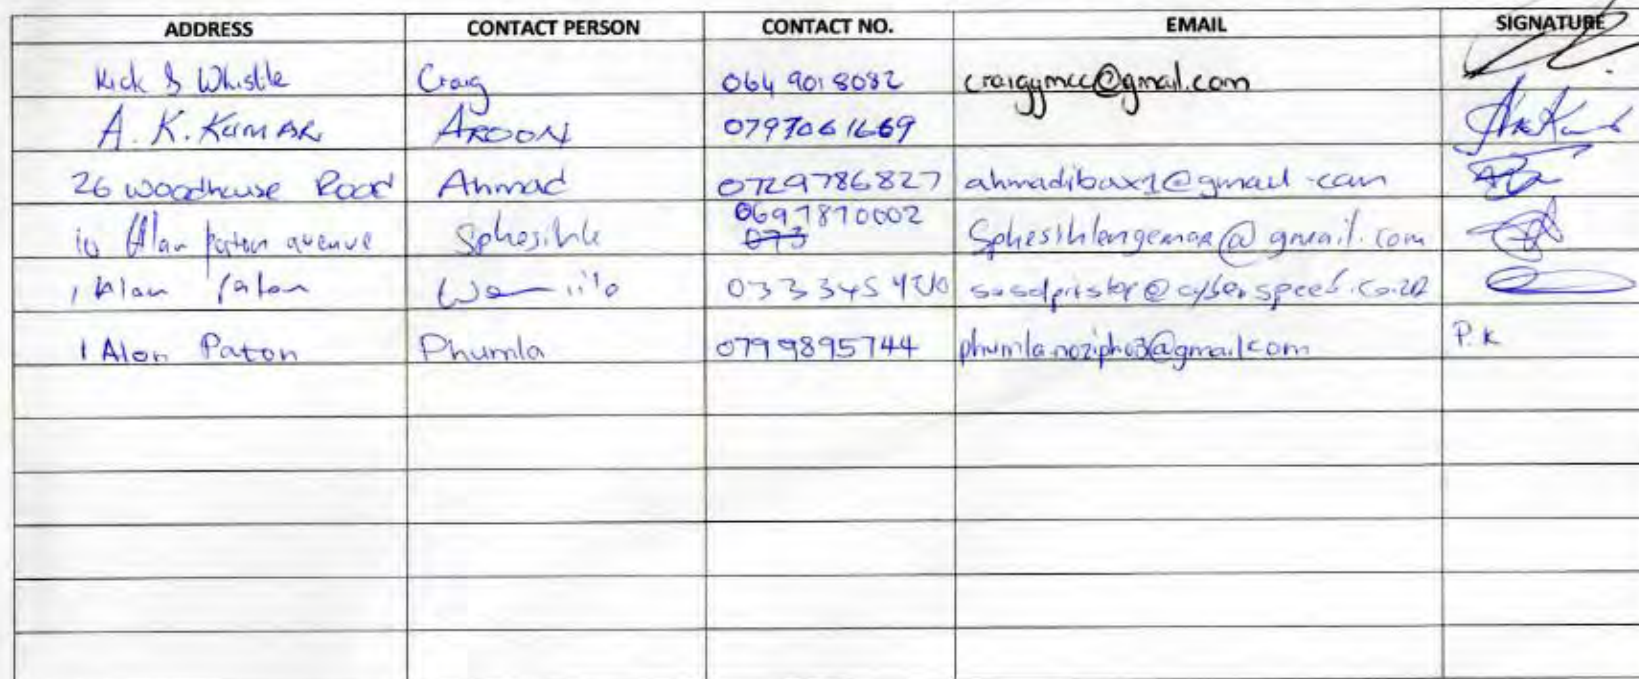 ADDRESS CONTACT PERSON CONTACT NO. EMAIL SIGNATURE
Kick & Whistle Craig 064 901 8082 craigymcc@gmail.com
A. K. KUMAR AROON 0797061669
26 Woodhouse Road Ahmad 0729786827 ahmadibax1@gmail.com
10 Alan paton avenue Sphesihle 0697870002
073 Sphesihlengemaa@gmail.com
1 Alan Paton 033345
1 Alan Paton Phumla 0799895744 phumla.nozipho3@gmail.com P.K